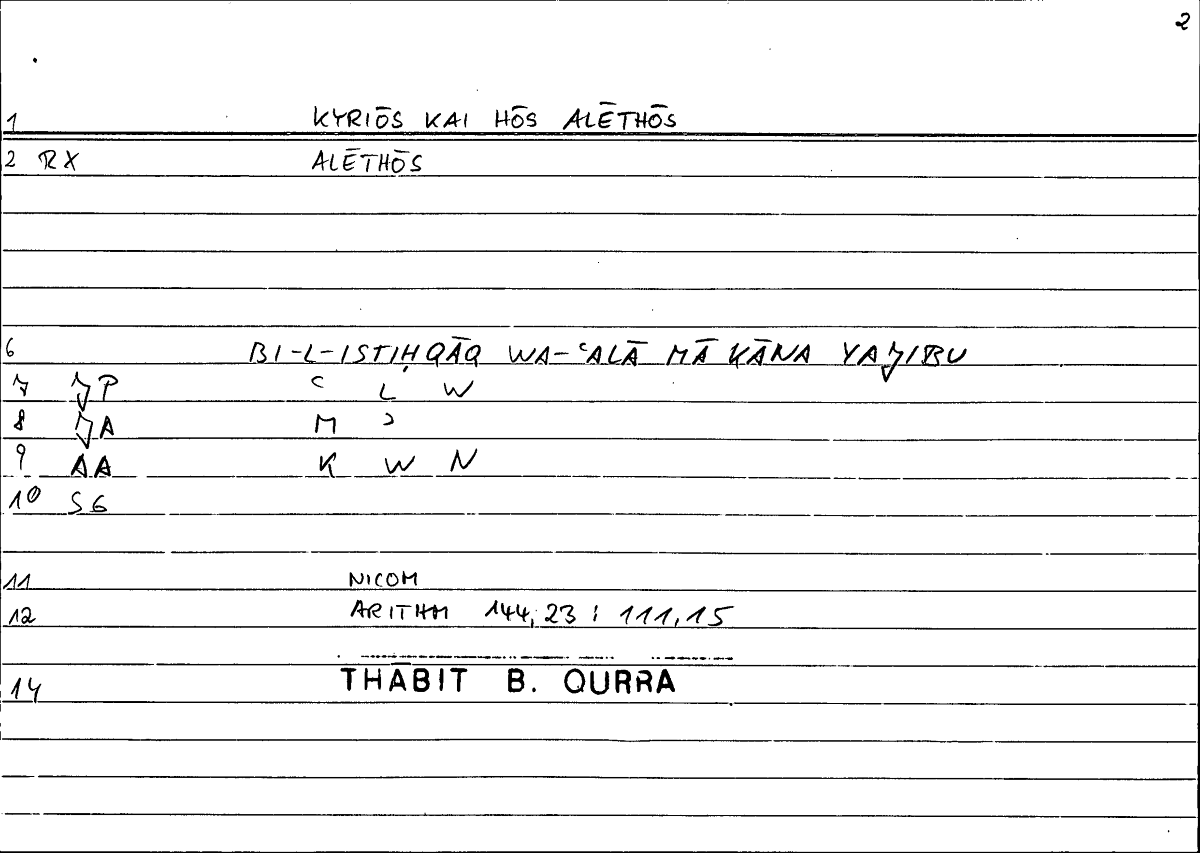 2
1 KYRIŌS KAI HŌS ALĒTHŌS
2 RX ALĒTHŌS
6 BI-L-ISTIḤQĀQ WA-ʿALĀ MĀ KĀNA YAJIBU
7 JP ʿ L W
8 JA M ʾ
9 AA K W N
10 SG
11 NICOM
12 ARITHM 144,23 : 111,15
14 THĀBIT B. QURRA